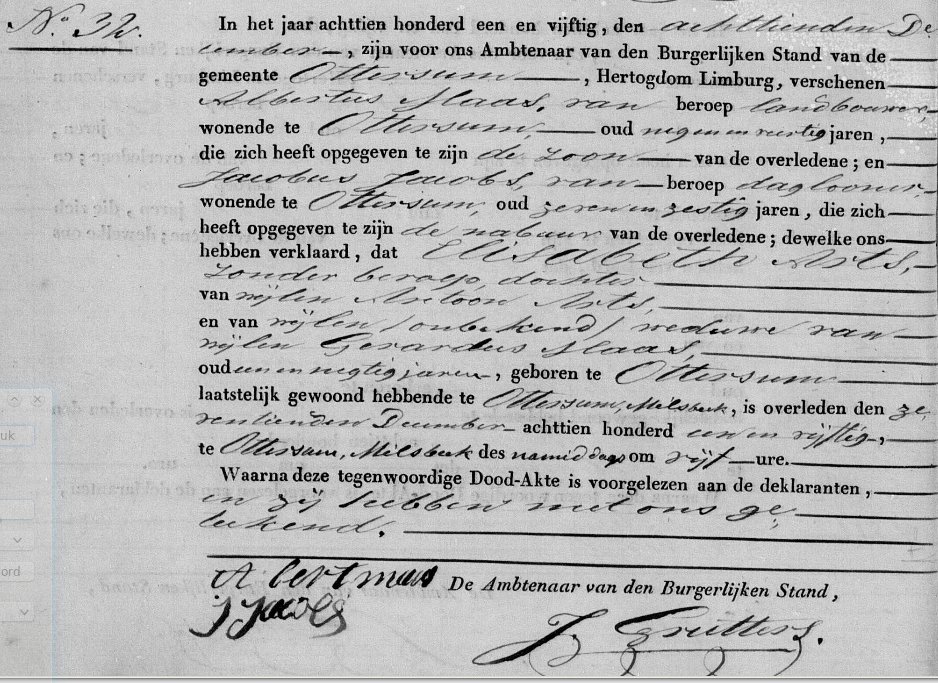 No. 32.
In het jaar achttien honderd een en vijftig, den achttienden De
cember, zijn voor ons Ambtenaar van den Burgerlijken Stand van de
gemeente Ottersum, Hertogdom Limburg, verschenen
Albertus Maas, van beroep landbouwer,
wonende te Ottersum oud negen en veertig jaren,
die zich heeft opgegeven te zijn de zoon van de overledene; en
Jacobus Jacobs, van beroep daglooner,
wonende te Ottersum, oud zeven en zestig jaren, die zich
heeft opgegeven te zijn de nabuur van de overledene; dewelke ons
hebben verklaard, dat Elisabeth Arts,
zonder beroep, dochter
van wijlen Arts,
en van wijlen /onbekend/ weduwe van
wijlen Gerardus Maas,
oud een en negtig jaren, geboren te Ottersum
laatstelijk gewoond hebbende te Ottersum, Milsbeek, is overleden den ze
ventienden December achttien honderd een en vijftig,
te Ottersum, Milsbeek des namiddags om vijf ure.
Waarna deze tegenwoordige Dood-Akte is voorgelezen aan de deklaranten,
en zij hebben met ons ge
teekend.
A bertmaas
J Jacobs
De Ambtenaar van den Burgerlijken Stand,
uk
ord